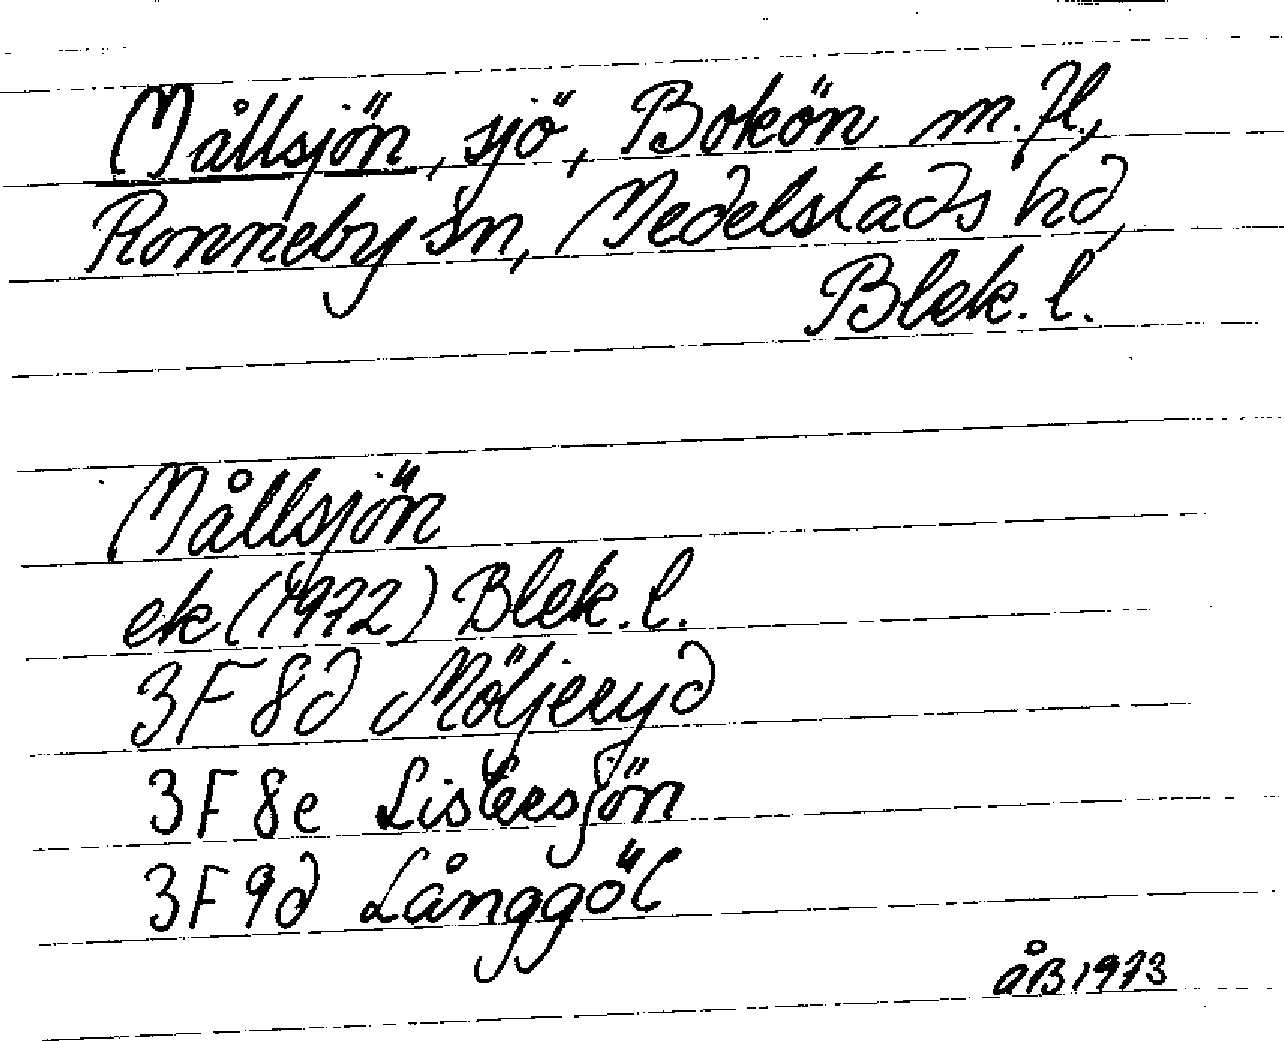 Mållsjön, sjö, Bokön m.fl.,
Ronneby sn, Medelstads hd,
Blek. l.
Mållsjön
ek (1972) Blek. l.
3F 8d Möljeryd
3F 8e Listersjön
3F 9d Långgöl
åB 1973